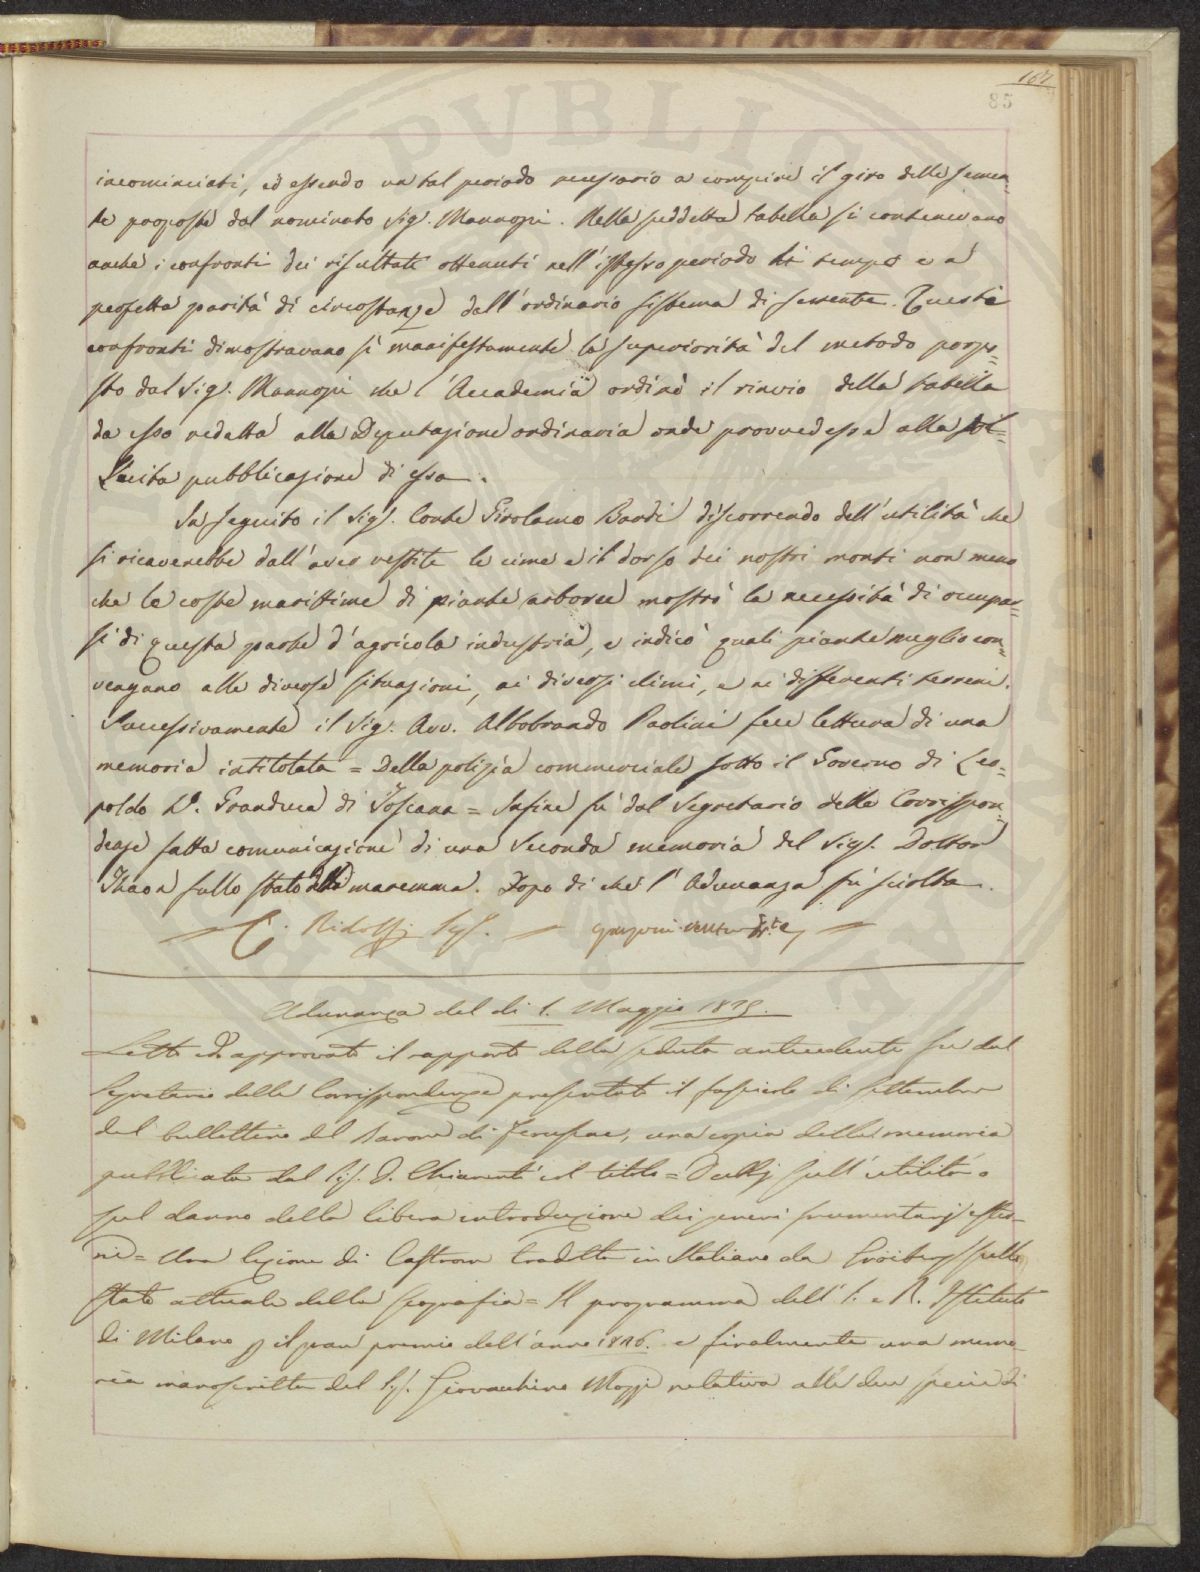 167
85
incominciati, ed essendo un tal periodo necessario a compire il giro delle semen-
te proposte dal nominato Sig. Mannozzi. Nella suddetta tabella si contenevano
anche i confronti dei risultati ottenuti nell'istesso periodo di tempo e a
perfetta parità di circostanze dall'ordinario sistema di semente. Questi
confronti dimostravano sì manifestamente la superiorità del metodo propo=
sto dal Sig. Mannozzi che l'Accademia ordinò il rinvio della tabella
da esso redatta alla Deputazione ordinaria onde provvedesse alla sol=
lecita pubblicazione di essa.
In seguito il Sig. Conte Girolamo Bardi discorrendo dell'utilità che
si ricaverebbe dall'aver vestite le cime e il dorso dei nostri monti non meno
che le coste marittime di piante arboree mostrò la necessità di occupar=
si di questa parte d'agricola industria, e indicò quali piante meglio con=
vengano alle diverse situazioni, ai diversi climi, e ai differenti terreni.
Successivamente il Sig. Avv. Aldobrando Paolini fece lettura di una
memoria intitolata = Della polizia commerciale sotto il Governo di Leo=
poldo 1.° Granduca di Toscana = Infine fù dal Segretario delle Corrispon=
denze fatta comunicazione di una seconda memoria del Sig. Dottor
Thaon sullo stato delle maremme. Dopo di che l'Adunanza fù sciolta.
C. Ridolfi
Adunanza del dì 1. Maggio 1825.
Letto ed approvato il rapporto della seduta antecedente fu dal
Segretario delle Corrispondenze presentato il fascicolo di Settembre
del bullettino del Barone di Ferussac, una copia della memoria
pubblicata dal Sig. D. Chiarenti col titolo = Dubbj sull'utilità o
sul danno della libera introduzione dei generi frumentarj este-
ri = Una lezione di tradotta in Italiano da sullo
stato attuale della Geografia = Il programma dell'I. e R. Istituto
di Milano p il gran premio dell'anno 1826. e finalmente una memo-
ria manoscritta del Sig. Giovacchino relativa alle due specie di